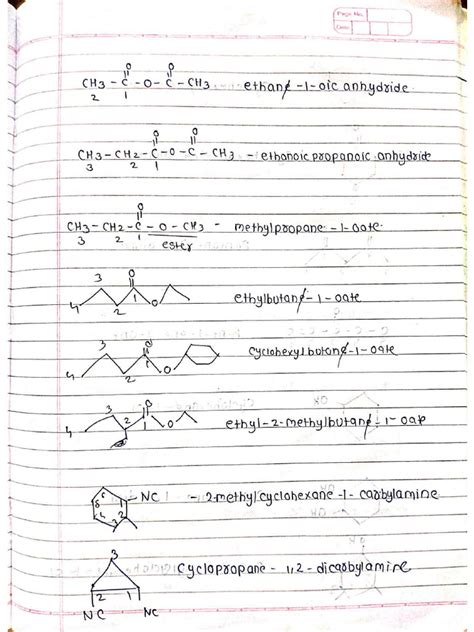 Page No.
Date
O O
CH3 - C - O - C - CH3 ethane - 1 - oic anhydride
2 1
O O
CH3 - CH2 - C - O - C - CH3 - ethanoic propanoic anhydride
3 2 1
O
CH3 - CH2 - C - O - CH3 - methylpropane - 1 - oate
3 2 1 ester
3 O
4 2 1 O ethylbutane - 1 - oate
3 O
4 2 1 O cyclohexylbutane - 1 - oate
3 O
4 2 1 O ethyl - 2 - methylbutane - 1 - oate
6 1 NC - 2 methyl cyclohexane - 1 - carbylamine
5 2
4 3
3
2 1 cyclopropane - 1,2 - dicarbylamine
NC NC